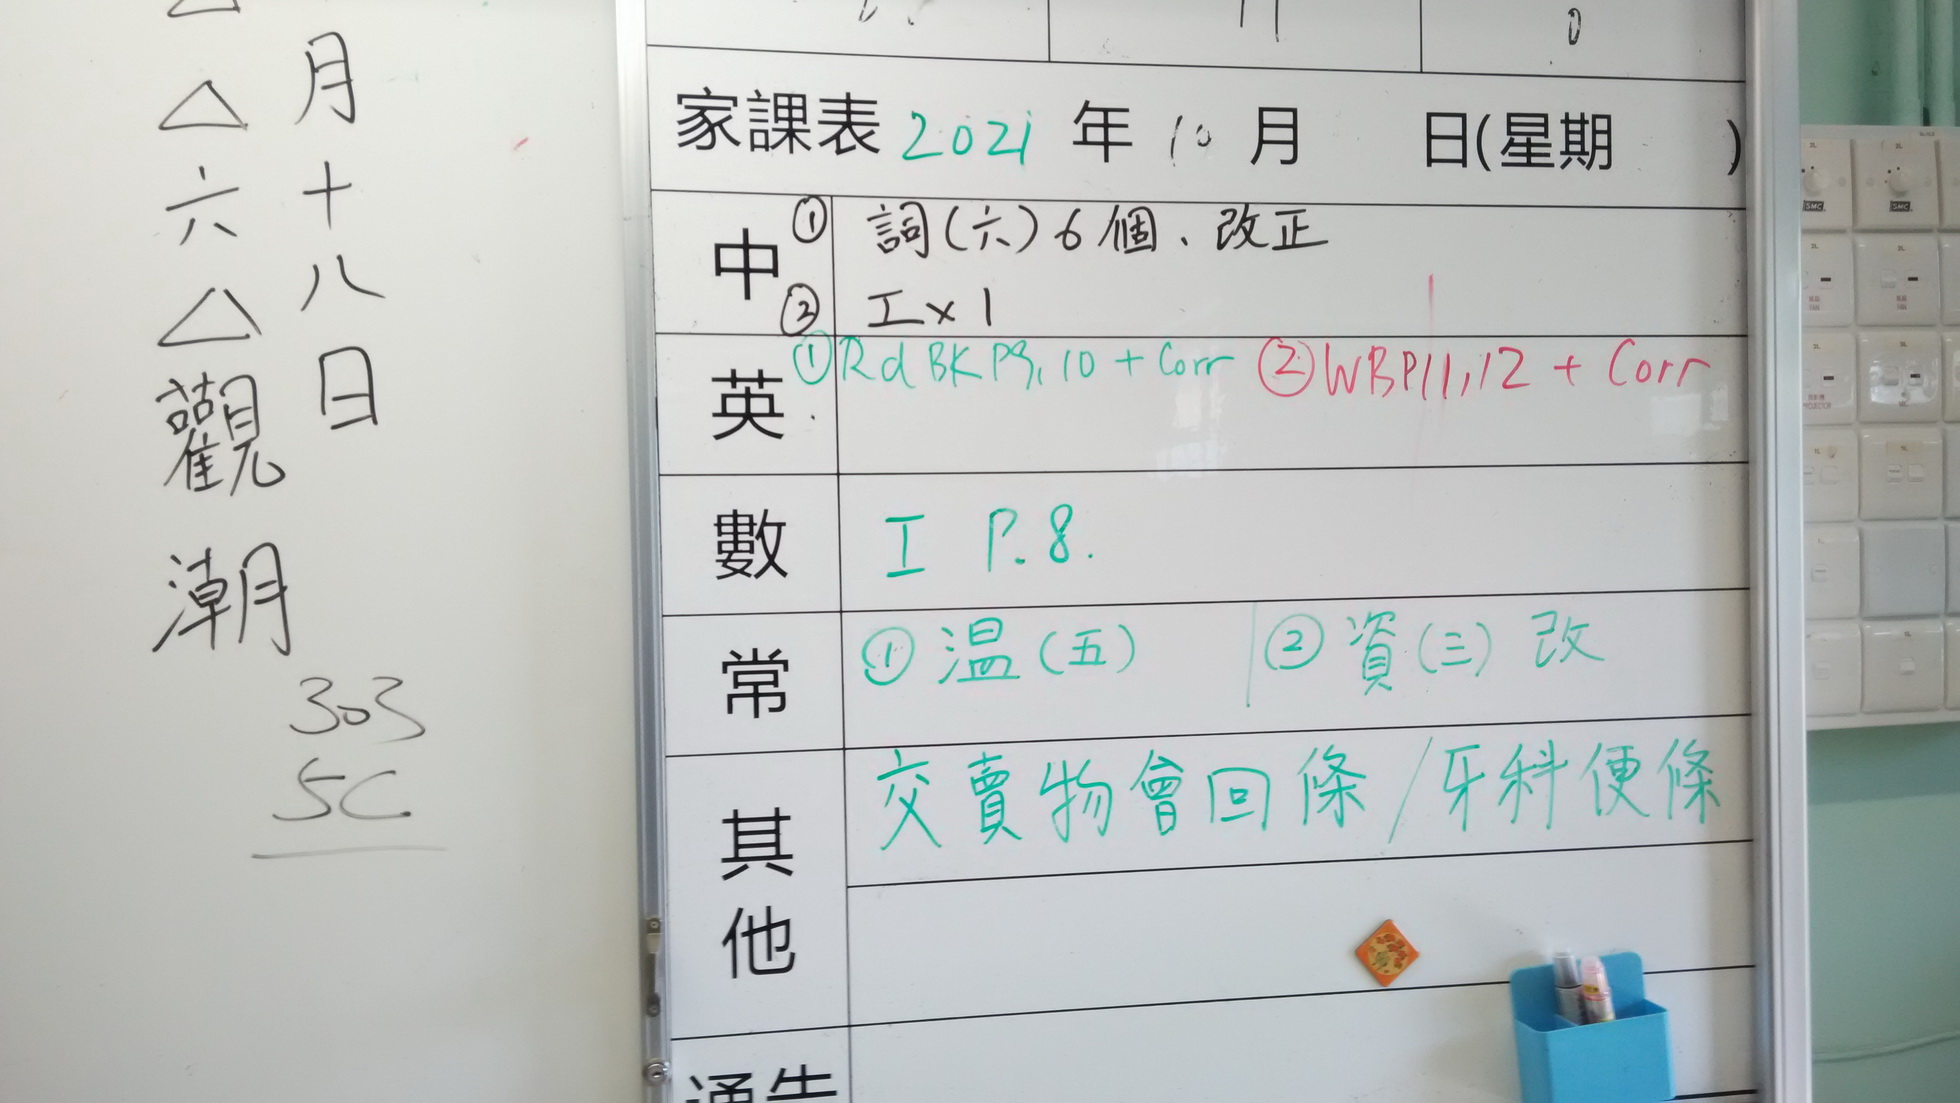 月十八日
△△六△觀潮
303
5C
家課表 2021 年 10 月 日(星期 )
中 ① 詞(六)6個、改正
② 工×1
英 ① Rd BK P9,10 + Corr ② WBP11,12 + Corr
數 工 P.8.
常 ① 温(五) ② 資(三)改
其他 交賣物會回條/牙科便條
通告